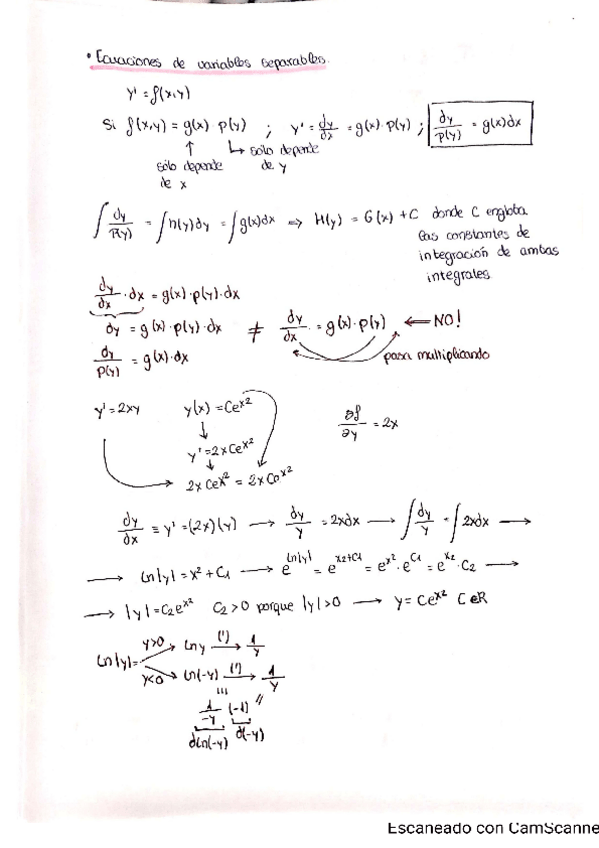 • Ecuaciones de variables separables.
y' = f(x,y)
Si f(x,y) = g(x) · p(y) ; y' = dy/dx = g(x) · p(y) ; dy/p(y) = g(x)dx
↑ ↳ sólo depende
sólo depende de y
de x
∫ dy/P(y) = ∫ h(y)dy = ∫ g(x)dx ⇒ H(y) = G(x) + C donde C engloba
las constantes de
integración de ambas
integrales.
dy/dx · dx = g(x) · p(y) · dx
dy = g(x) · p(y) · dx ≠ dy/dx = g(x) · p(y) ⟵ NO!
dy/p(y) = g(x) · dx pasa multiplicando
y' = 2xy y(x) = Ce^x² ∂f/∂y = 2x
↓
y' = 2xCe^x²
↓
→ 2xCe^x² = 2xCe^x²
dy/dx = y' = (2x)(y) → dy/y = 2xdx → ∫ dy/y = ∫ 2xdx →
→ ln|y| = x² + C₁ → e^ln|y| = e^x2+C1 = e^x² · e^C1 = e^x2 · C₂ →
→ |y| = C₂e^x² C₂ > 0 porque |y| > 0 → y = Ce^x² C∈R
y>0 → ln y (') → 1/y
ln|y| =
y<0 → ln(-y) (') → 1/y
1/-y (-1) //
d(ln(-y)) d(-y)
Escaneado con CamScanne